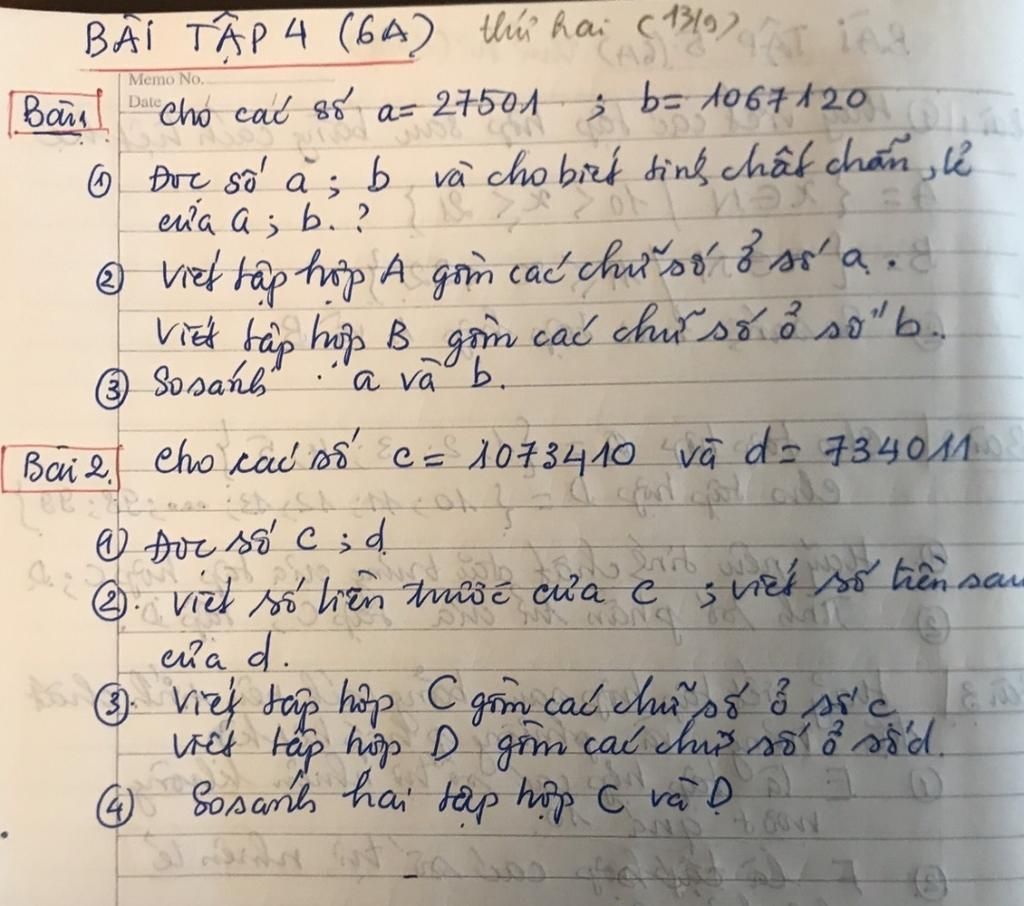 BÀI TẬP 4 (6A) thứ hai (13/9)
Memo No.
Date
Bài 1 Cho các số a = 27501 ; b = 1067120
① Đọc số a ; b và cho biết tính chất chẵn, lẻ
của a ; b. ?
② Viết tập hợp A gồm các chữ số ở số a.
Viết tập hợp B gồm các chữ số ở số b.
③ So sánh a và b.
Bài 2. Cho các số c = 1073410 và d = 734011
① Đọc số c ; d
②. Viết số liền trước của c ; viết số liền sau
của d.
③. Viết tập hợp C gồm các chữ số ở số c
Viết tập hợp D gồm các chữ số ở số d.
④ So sánh hai tập hợp C và D